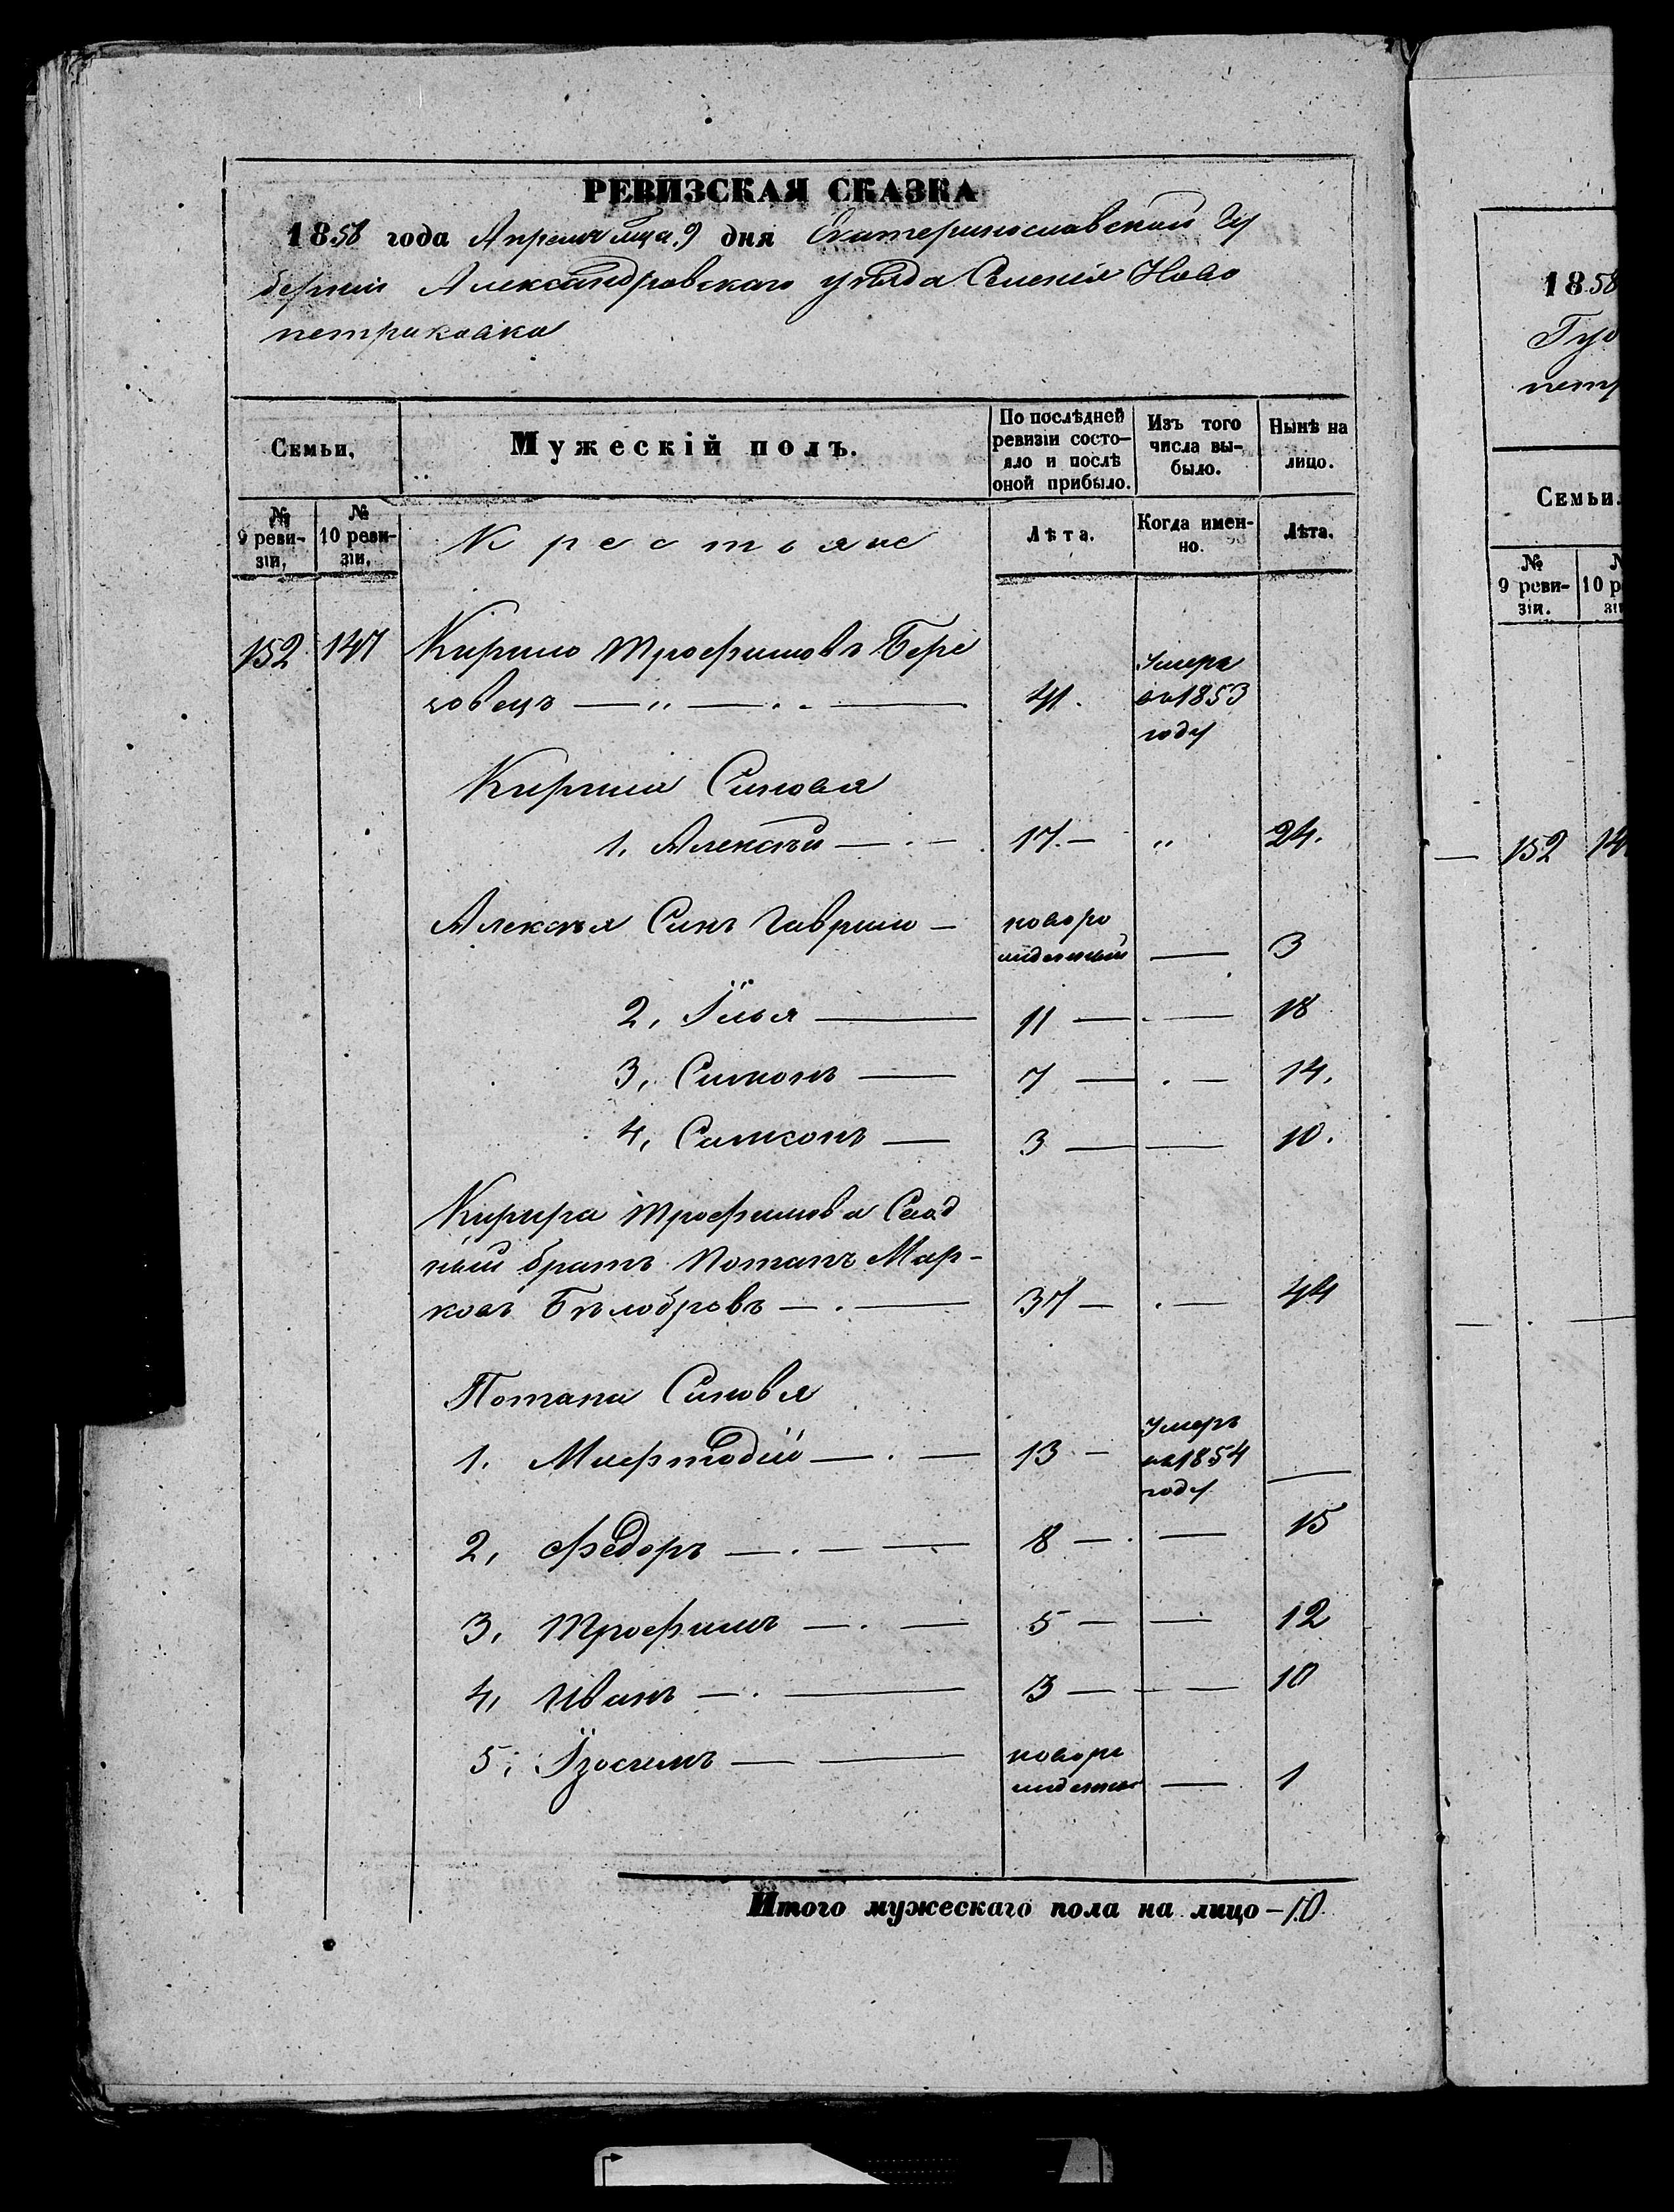 РЕВИЗСКАЯ СКАЗКА
1858 года Апреля мца 9 дня Екатеринославской Гу
берніи Александровскаго уѣзда Селенія Ново
петриковка
Семьи, Мужескій полъ. По послѣдней ревизіи состояло и послѣ оной прибыло. Изъ того числа выбыло. Нынѣ на лицо.
№ 9 ревизіи, № 10 ревизіи, Крестьяне Лѣта. Когда именно. Лѣта.
152 147 Кирило Трофимовъ Бере
зовецъ — „ — . - — 41. Умеръ въ 1853 году
Кирила Синовя
1. Алексѣй — . - 17. — „ 24.
Алексѣя Синъ Гаврило — новорожденный — 3
2, Їлья — 11 — . — 18
3, Симонъ — 7 — . — 14.
4, Самсонъ — 3 — — 10.
Трофимова Свод
ный братъ Потапъ Мар-
ковъ Бѣлобровъ — . — 37 — . — 44
Потапа Синовя
1. — . — 13 — Умеръ въ 1854 году —
2, Федоръ — . — — 8 — . — 15
3, Трофимъ — . — 5 — — 12
4, Иванъ — . — 3 — — — 10
5; Їзосимъ — — — 1
Итого мужескаго пола на лицо — 10.
1858
Губ
петр
Семьи.
№ 9 ревизіи.
10 р
152 14